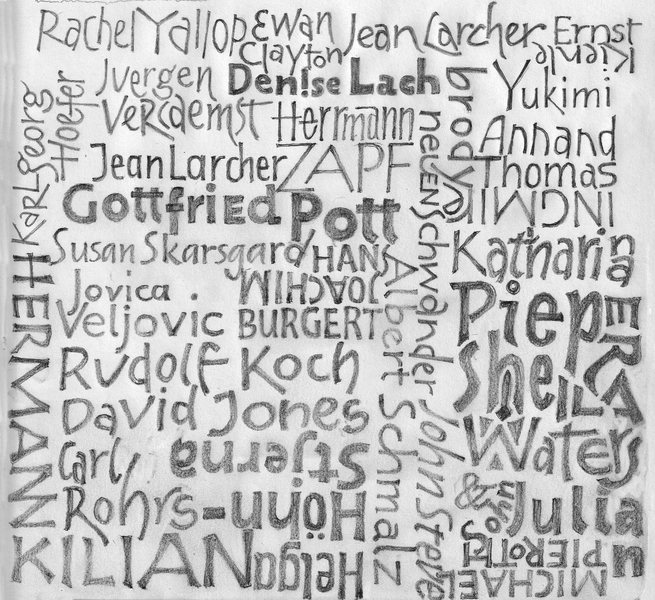 Rachel Yallop
Ewan
Clayton
Jean Larcher
Ernst
KarLgeorg
Hoefer
Jvergen
Vercaemst
Denise Lach
Herrmann
ZAPF
brody
neuenSchwander
Yukimi
Annand
Thomas
Jean Larcher
Gottfried Pott
Susan Skarsgard
HANS
JOACHIM
BURGERT
Jovica
Veljovic
Albert Schmalz
Katharina
Piep
Sheila
Waters
HERMANN
KILIAN
Rudolf Koch
David Jones
Carl
Rohrs
Stjerna
Höhn-
Helga
John Steve
& Julian
MICHAEL
PIEROTH